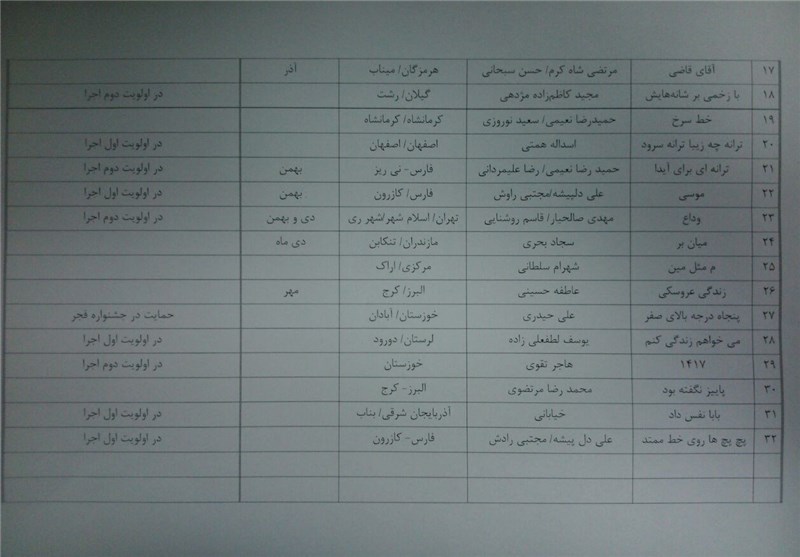 ۱۷ آقای قاضی مرتضی شاه کرم/ حسن سبحانی هرمزگان/ میناب آذر
۱۸ با زخمی بر شانه‌هایش مجید کاظم‌زاده مژدهی گیلان/ رشت در اولویت دوم اجرا
۱۹ خط سرخ حمیدرضا نعیمی/ سعید نوروزی کرمانشاه/ کرمانشاه
۲۰ ترانه چه زیبا ترانه سرود اسداله همتی اصفهان/ اصفهان در اولویت اول اجرا
۲۱ ترانه ای برای آیدا حمید رضا نعیمی/ رضا علیمردانی فارس- نی ریز بهمن در اولویت دوم اجرا
۲۲ موسی علی دلپیشه/مجتبی راوش فارس/ کازرون بهمن در اولویت اول اجرا
۲۳ وداع مهدی صالحیار/ قاسم روشنایی تهران/ اسلام شهر/شهر ری دی و بهمن در اولویت دوم اجرا
۲۴ میان بر سجاد بحری مازندران/ تنکابن دی ماه
۲۵ م مثل مین شهرام سلطانی مرکزی/ اراک
۲۶ زندگی عروسکی عاطفه حسینی البرز/ کرج مهر
۲۷ پنجاه درجه بالای صفر علی حیدری خوزستان/ آبادان حمایت در جشنواره فجر
۲۸ می خواهم زندگی کنم یوسف لطفعلی زاده لرستان/ دورود در اولویت اول اجرا
۲۹ ۱۴۱۷ هاجر تقوی خوزستان در اولویت دوم اجرا
۳۰ پاییز نگفته بود محمد رضا مرتضوی البرز- کرج
۳۱ بابا نفس داد خیابانی آذربایجان شرقی/ بناب در اولویت اول اجرا
۳۲ پچ پچ ها روی خط ممتد علی دل پیشه/ مجتبی رادش فارس- کازرون در اولویت اول اجرا